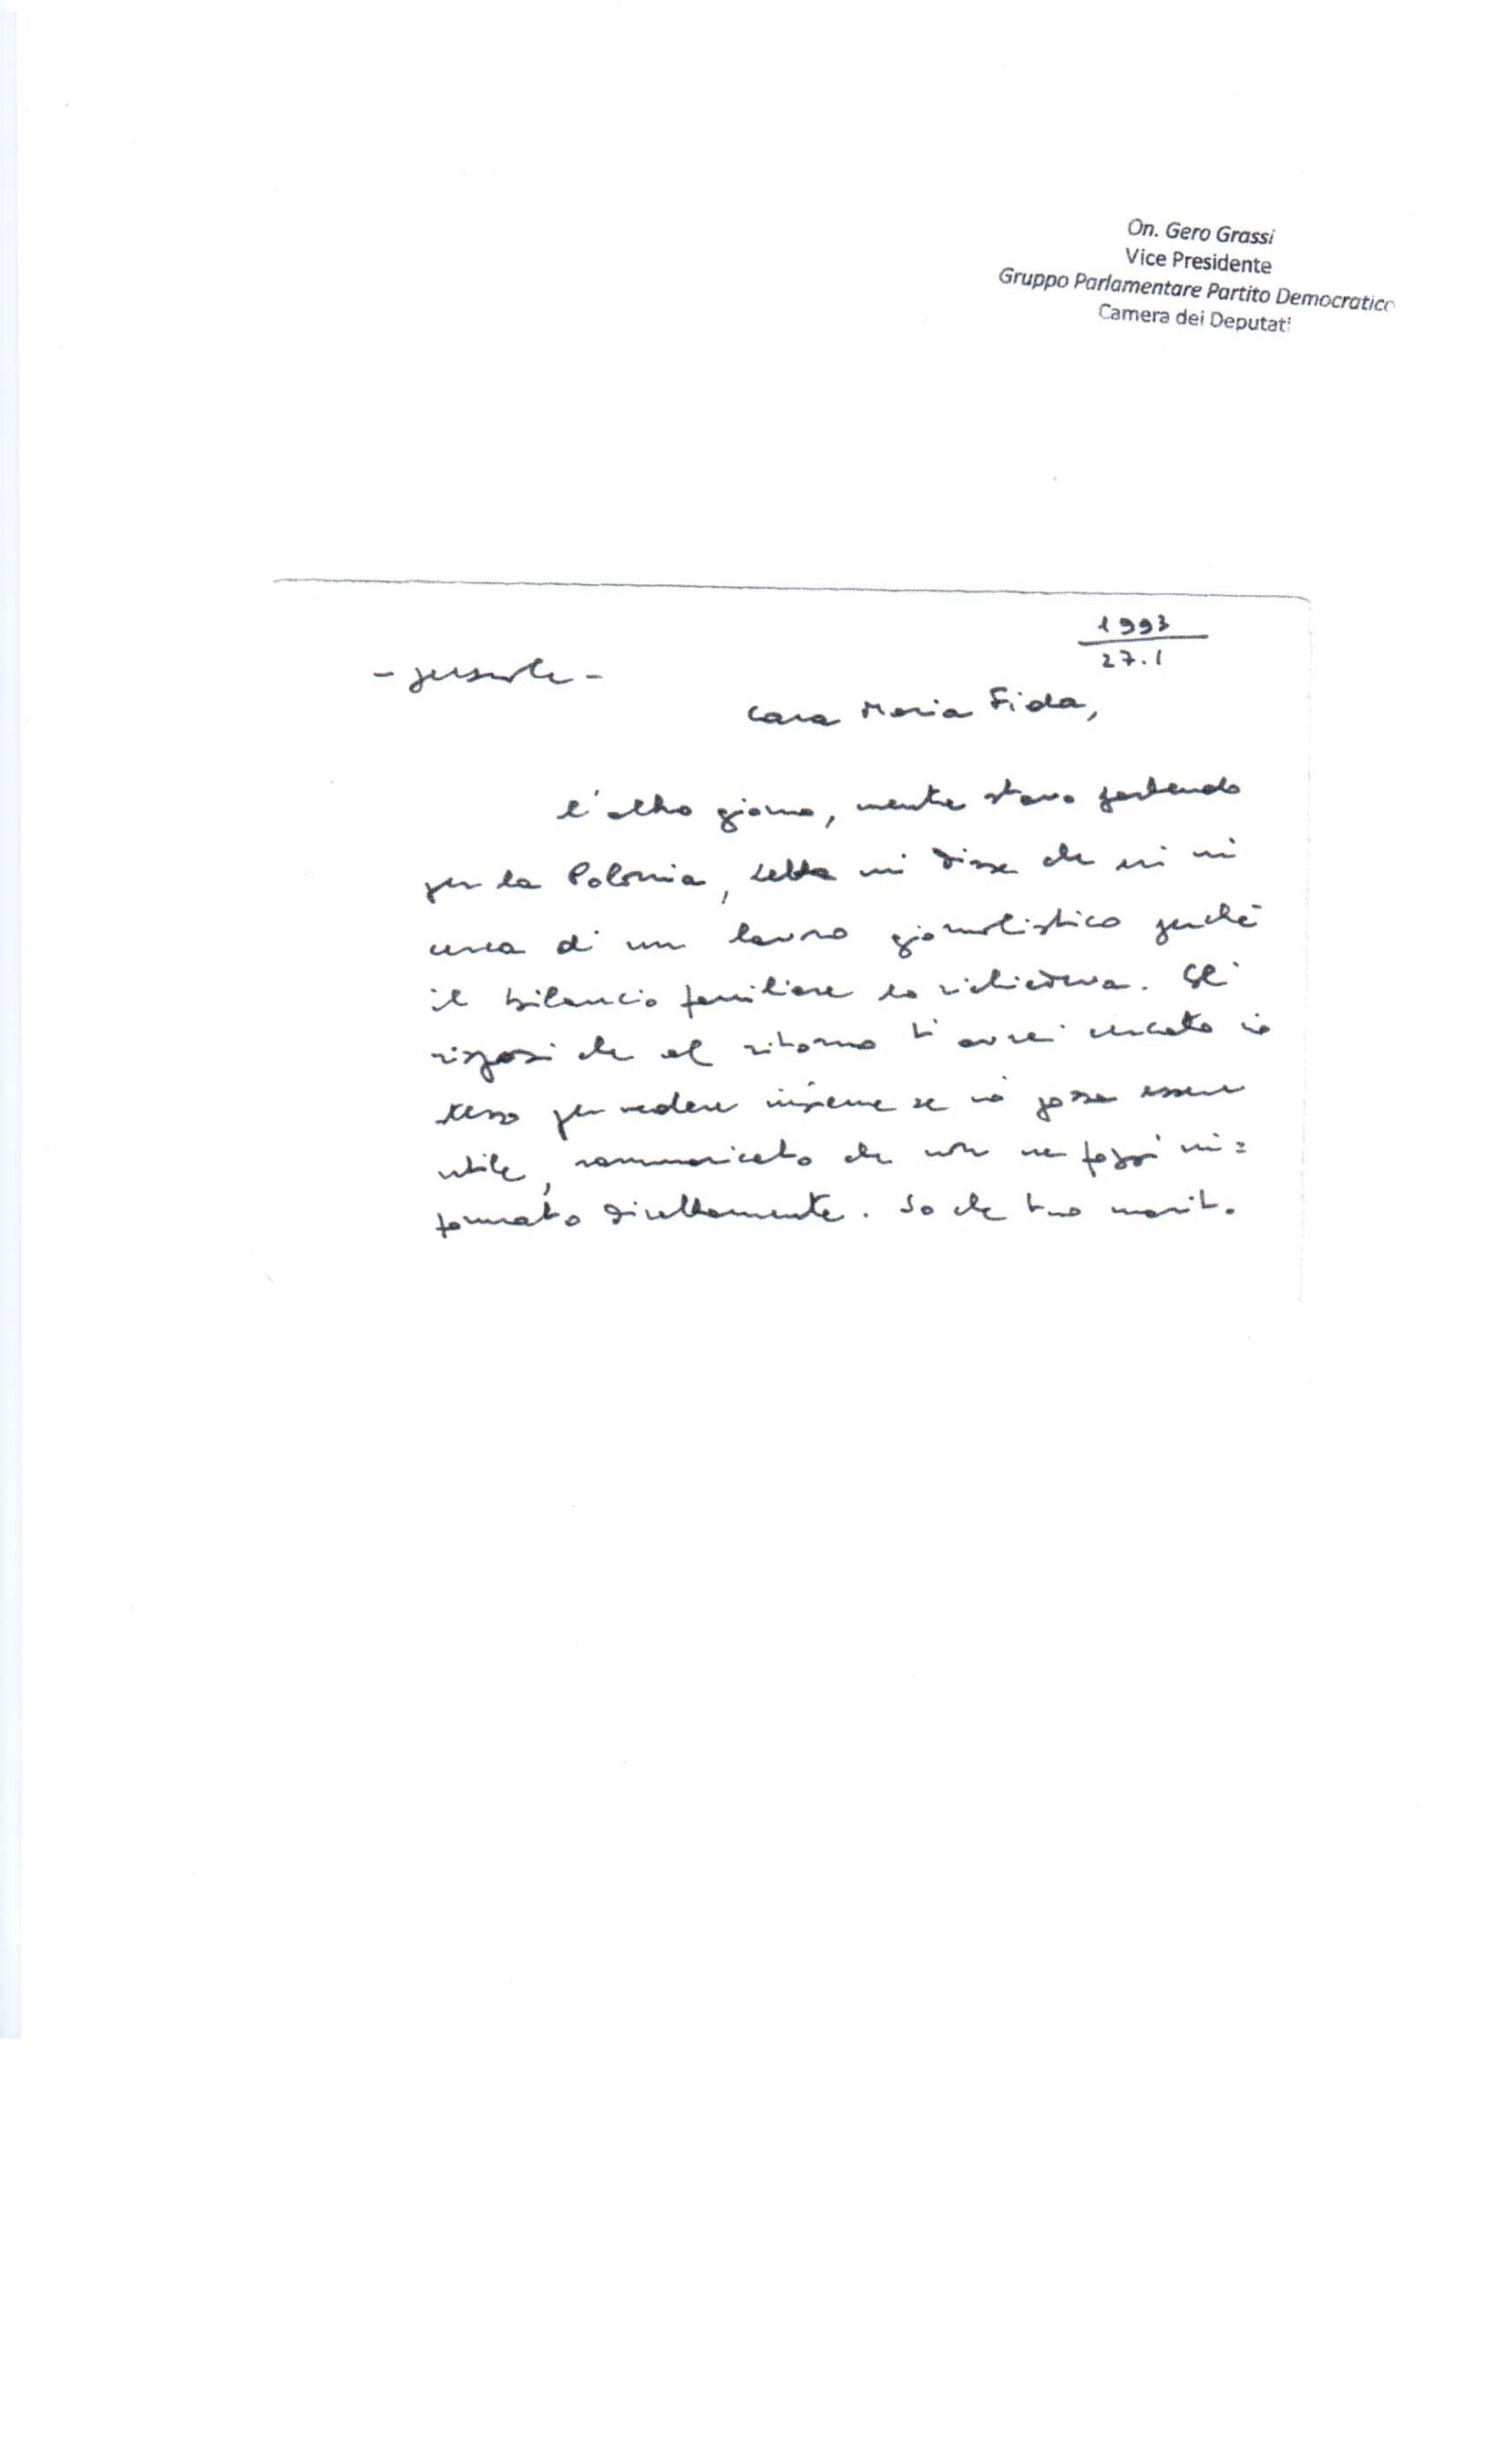 On. Gero Grassi
Vice Presidente
Gruppo Parlamentare Partito Democratico
Camera dei Deputati
1993
27.1
- personale -
Cara Maria Fida,
l'altro giorno, mentre stavo partendo
per la Polonia, Letta mi disse che eri in
cerca di un lavoro giornalistico perché
il bilancio familiare lo richiedeva. Gli
risposi che al ritorno ti avrei cercato io
stesso per vedere insieme se io possa essere
utile, rammaricato che non ne fossi in=
formato direttamente. So che tuo marito